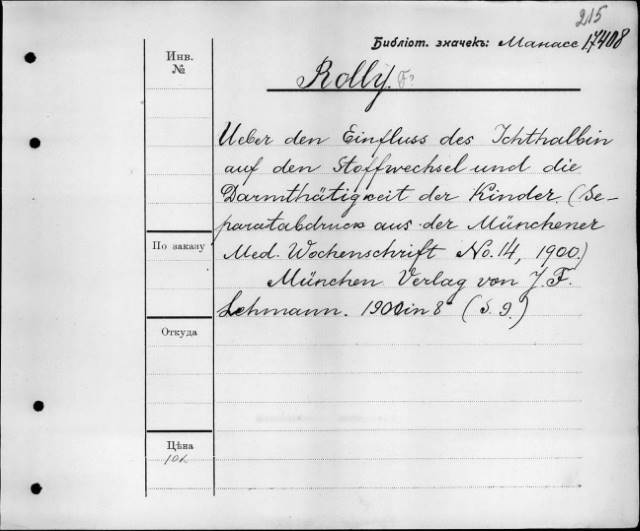 215
Библіот. значекъ: Манасс 17408
Инв.
№
Rolly. F.
Ueber den Einfluss des Ichthalbin
auf den Stoffwechsel und die
Darmthätigkeit der Kinder. (Se-
paratabdruck aus der Münchener
По заказу
Med. Wochenschrift No. 14, 1900.)
München Verlag von J. F.
Lehmann. 1900 in 8° (S. 9.)
Откуда
Цѣна